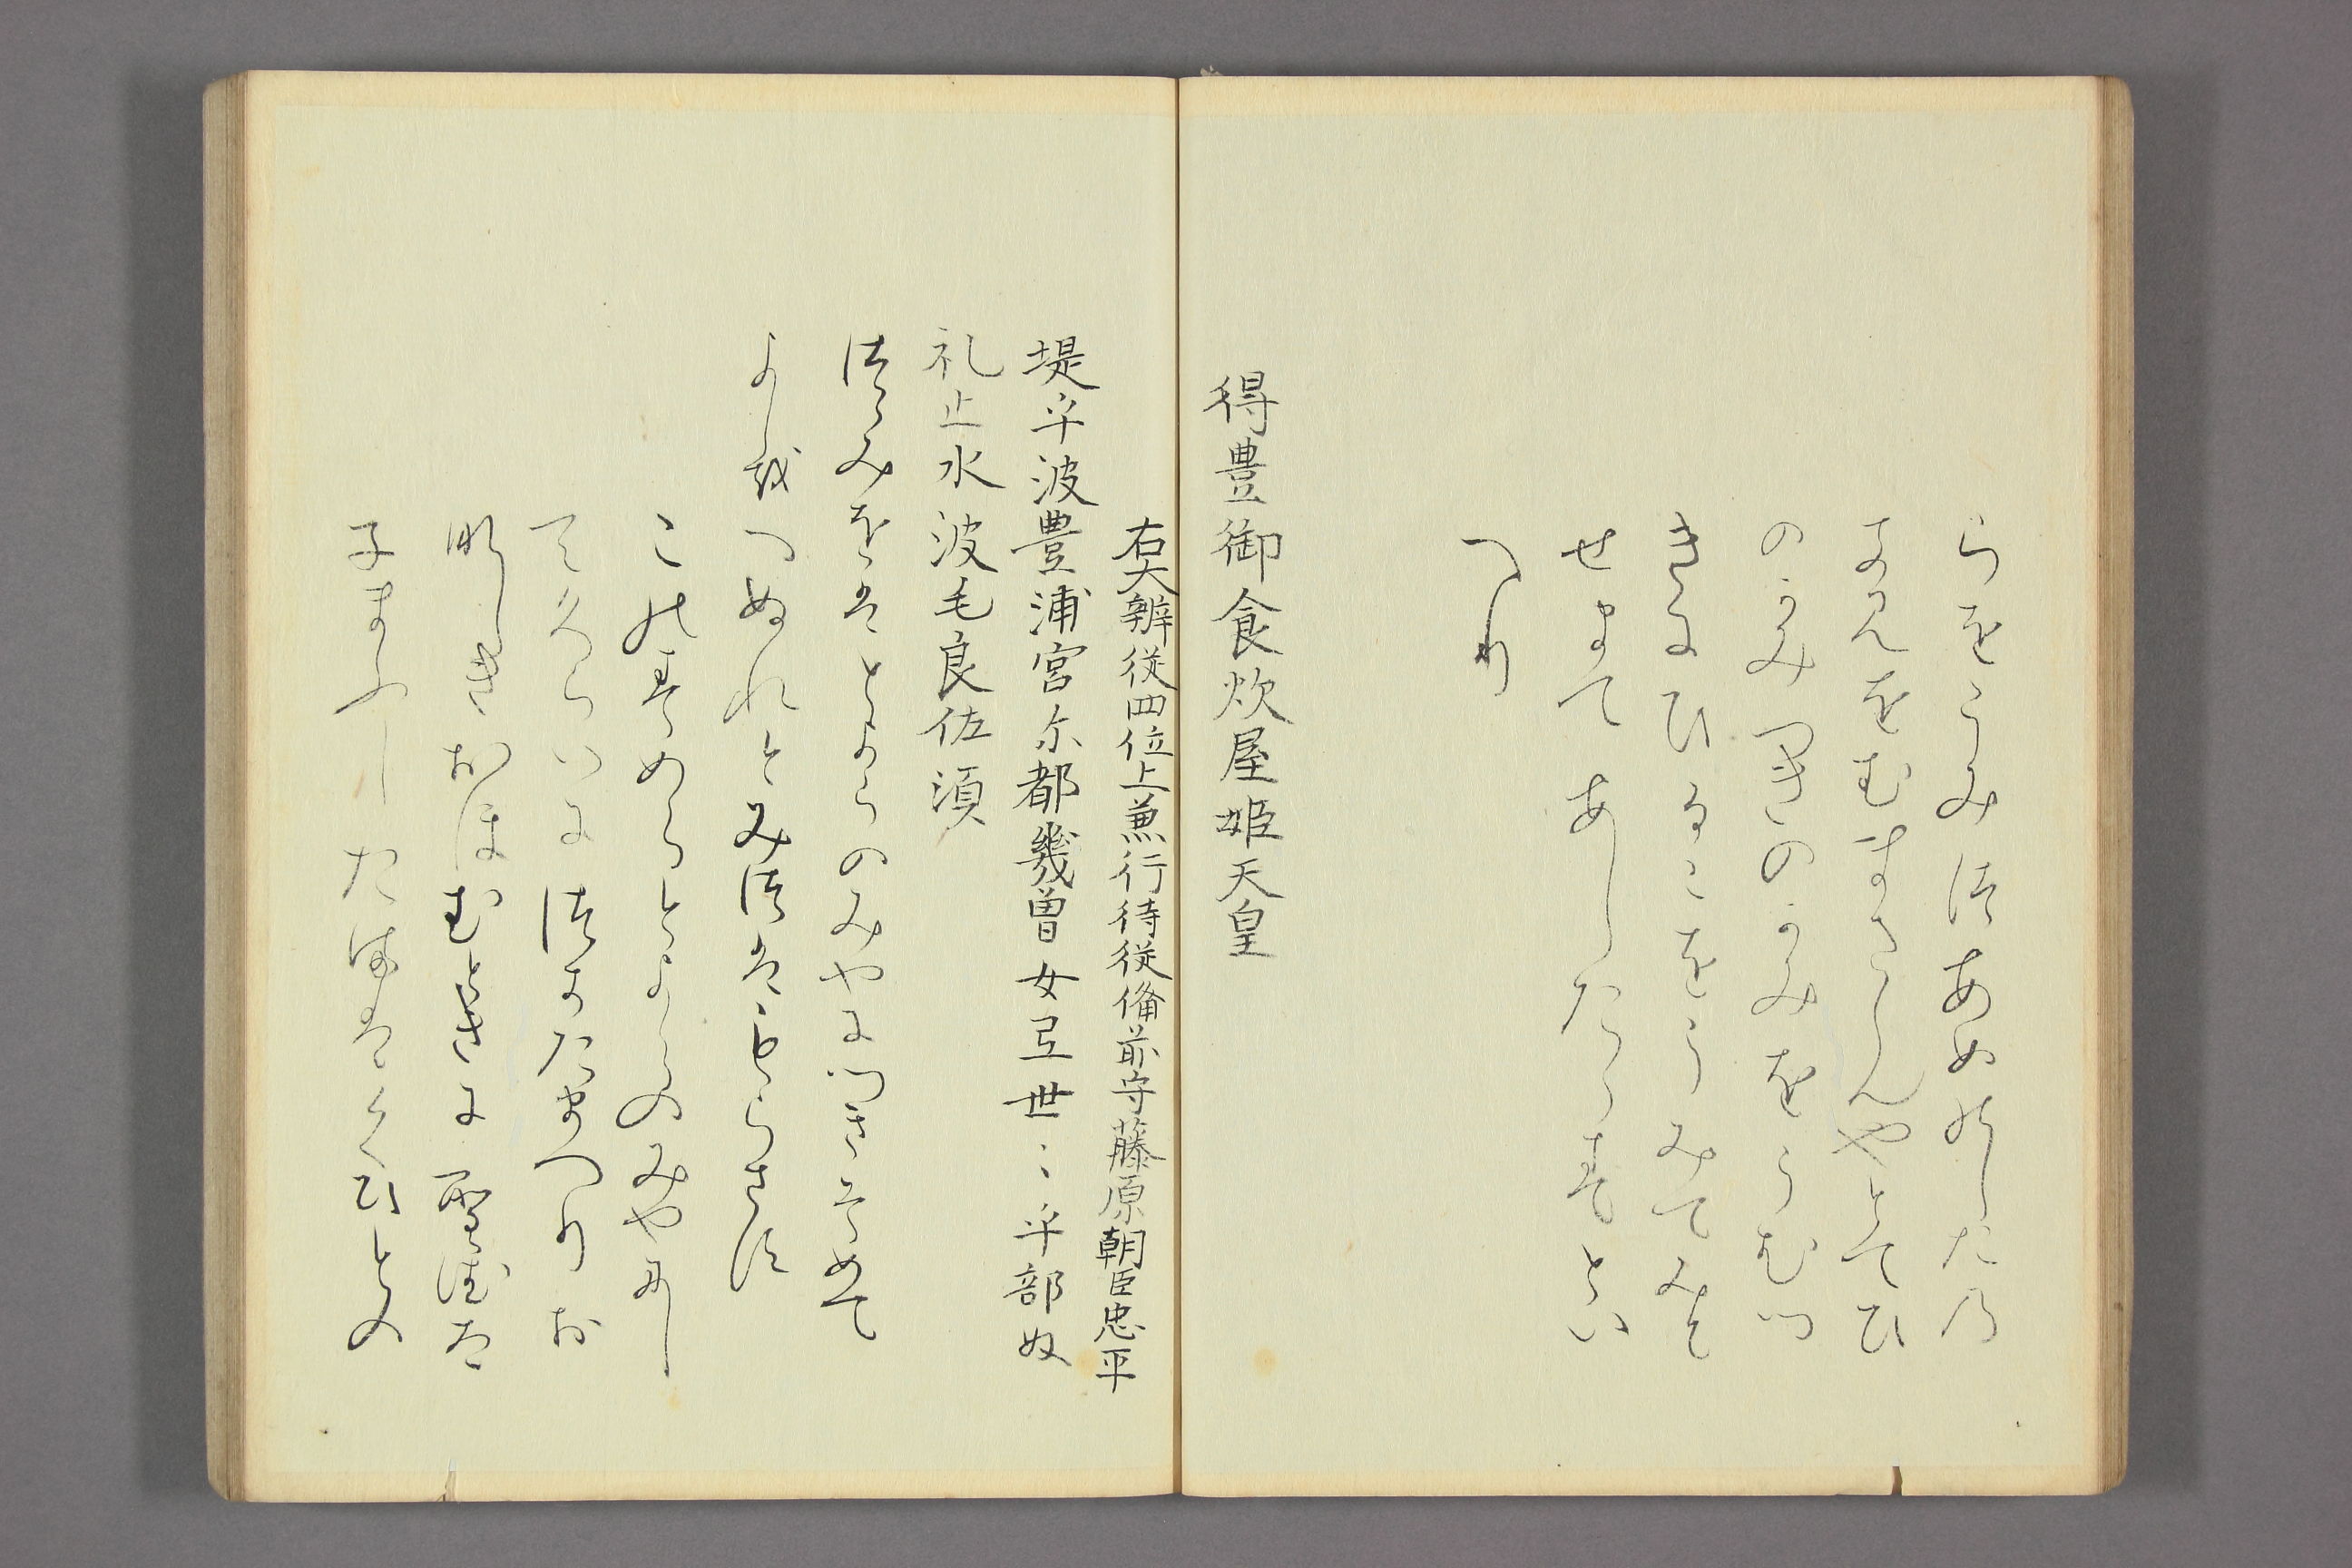 らをうみ徒あめのした乃
きみをむまさらんやとてひ
のかみつきのかみをうむつ
きにひるこをうみてみと
せまてあしたゝすとい
へり
得豊御食炊屋姫天皇
右大辨従四位上兼行待従備前守藤原朝臣忠平
堤乎波豊浦宮尓都幾曽女弖世々乎部奴
礼止水波毛良佐須
つゝみをはとよらのみやにつきそめて
よゝをへぬれとみつはもらさす
このすめらとよらのみやにし
てくらいにつきたまへりお
なしきおほむときに聖徳太
子まふしたまはくひとの